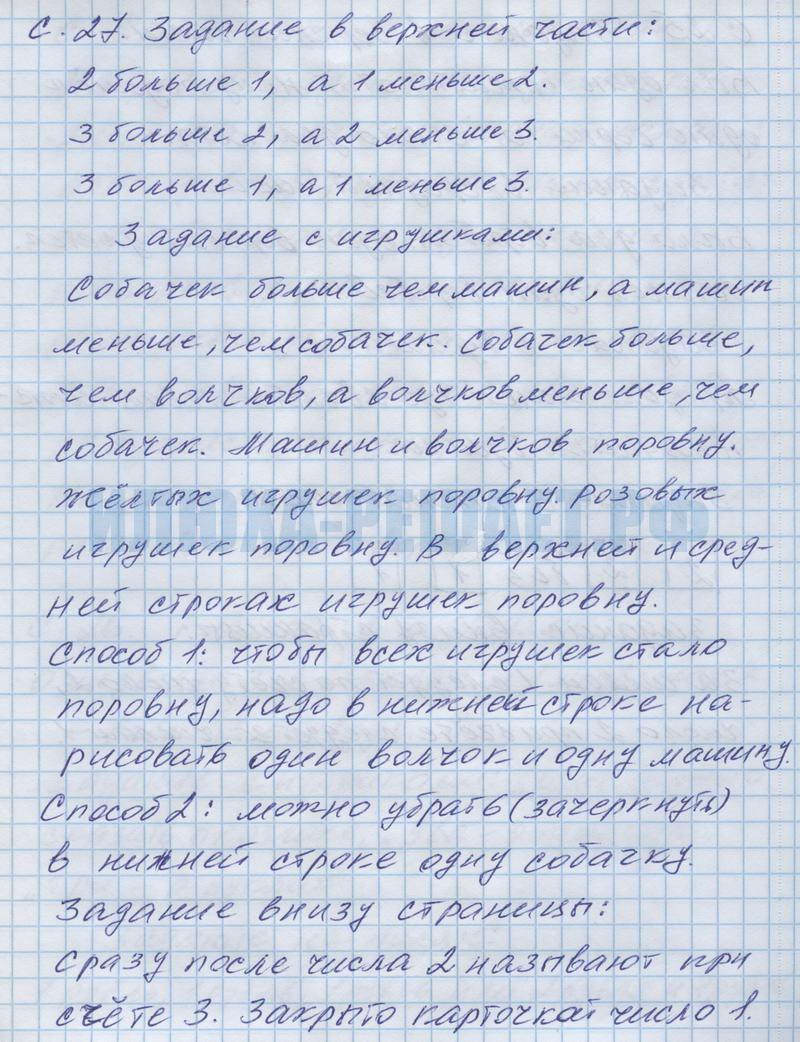 с. 27. Задание в верхней части:
2 больше 1, а 1 меньше 2.
3 больше 2, а 2 меньше 3.
3 больше 1, а 1 меньше 3.
Задание с игрушками:
Собачек больше чем машин, а машин
меньше, чем собачек. Собачек больше,
чем волчков, а волчков меньше, чем
собачек. Машин и волчков поровну.
Жёлтых игрушек поровну. Розовых
игрушек поровну. В верхней и сред-
ней строках игрушек поровну.
Способ 1: чтобы всех игрушек стало
поровну, надо в нижней строке на-
рисовать один волчок и одну машину.
Способ 2: можно убрать (зачеркнуть)
в нижней строке одну собачку.
Задание внизу страницы:
Сразу после числа 2 называют при
счёте 3. Закрыто карточкой число 1.